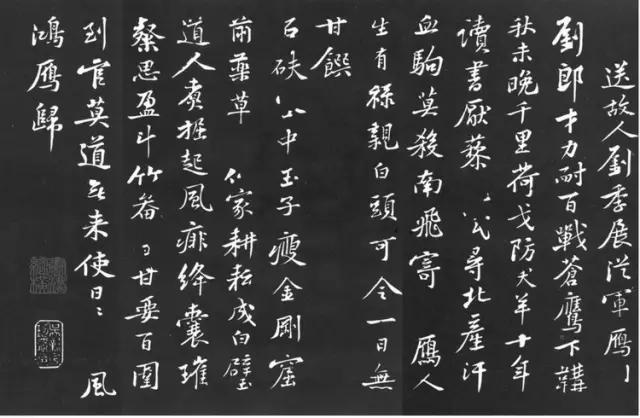 送故人劉季展從軍雁
劉郎才力耐百戰蒼鷹下鞲
秋未晚千里荷戈防犬羊十年
讀書厭藜尋北產汗
血駒莫殺南飛寄鴈人
生有祿親白頭可令一日無
甘饌
石砆中玉子瘦金剛窟
前藥草家耕耘成白璧
道人煮掘起風痱絳囊璀
粲思盈斗竹畚甘要百圍
到官莫道無來使日日風
鴻雁歸